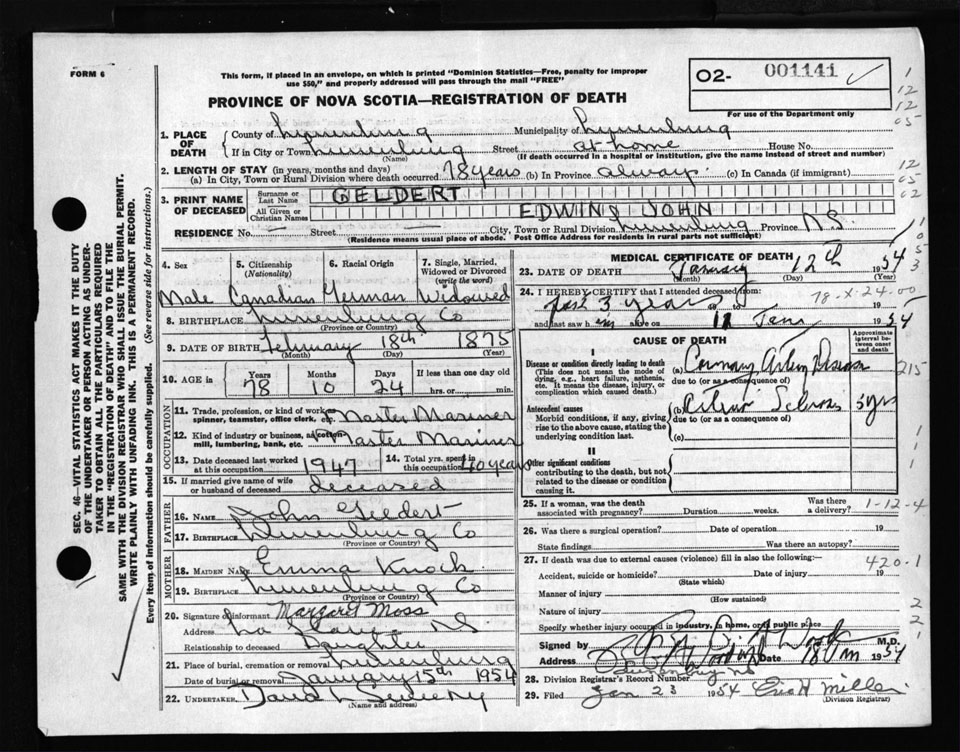 FORM 6
This form, if placed in an envelope, on which is printed "Dominion Statistics—Free, penalty for improper
use $50," and properly addressed will pass through the mail "FREE"
O2- 001141
PROVINCE OF NOVA SCOTIA—REGISTRATION OF DEATH
For use of the Department only
1. PLACE OF DEATH County of Lunenburg Municipality of Lunenburg
If in City or Town Lunenburg Street at home House No.
(Name) (If death occurred in a hospital or institution, give the name instead of street and number)
2. LENGTH OF STAY (in years, months and days)
(a) In City, Town or Rural Division where death occurred 78 years (b) In Province always (c) In Canada (if immigrant)
3. PRINT NAME OF DECEASED Surname or Last Name GELDERT
All Given or Christian Names EDWIN JOHN
RESIDENCE No. — Street — City, Town or Rural Division Lunenburg Province N.S.
(Residence means usual place of abode. Post Office Address for residents in rural parts not sufficient)
4. Sex Male
5. Citizenship (Nationality) Canadian
6. Racial Origin German
7. Single, Married, Widowed or Divorced (write the word) Widowed
8. BIRTHPLACE Lunenburg Co
(Province or Country)
9. DATE OF BIRTH February 18th 1875
(Month) (Day) (Year)
10. AGE in Years 78 Months 10 Days 24 If less than one day old hrs. or min.
OCCUPATION
11. Trade, profession, or kind of work as spinner, teamster, office clerk, etc. Master Mariner
12. Kind of industry or business, as cotton mill, lumbering, bank, etc. Master Mariner
13. Date deceased last worked at this occupation 1947 14. Total yrs. spent in this occupation 40 years
15. If married give name of wife or husband of deceased deceased
FATHER
16. Name John Geldert
17. Birthplace Lunenburg Co
(Province or Country)
MOTHER
18. Maiden Name Emma Knock
19. Birthplace Lunenburg Co
(Province or Country)
20. Signature of informant Margaret Moss
Address La Have N S
Relationship to deceased Daughter
21. Place of burial, cremation or removal Lunenburg
Date of burial or removal January 15th 1954
22. UNDERTAKER David Sweeny
(Name and address)
MEDICAL CERTIFICATE OF DEATH
23. DATE OF DEATH January 12th 1954
(Month) (Day) (Year)
24. I HEREBY CERTIFY that I attended deceased from:
past 3 years to
78-X-24-00
and last saw him alive on 11 Jan 1954
CAUSE OF DEATH
Approximate interval between onset and death
I
Disease or condition directly leading to death
(This does not mean the mode of dying, e.g., heart failure, asthenia, etc. It means the disease, injury, or complication which caused death.)
(a) Coronary Artery Disease
due to (or as a consequence of)
Antecedent causes
Morbid conditions, if any, giving rise to the above cause, stating the underlying condition last.
(b) 3 yrs
due to (or as a consequence of)
(c)
II
Other significant conditions
contributing to the death, but not related to the disease or condition causing it.
25. If a woman, was the death associated with pregnancy? Duration weeks. Was there a delivery?
1-12-4
26. Was there a surgical operation? Date of operation 19
State findings Was there an autopsy?
27. If death was due to external causes (violence) fill in also the following:—
420.1
Accident, suicide or homicide? Date of injury 19
(State which)
Manner of injury
(How sustained)
Nature of injury
Specify whether injury occurred in industry, in home, or at public place
Signed by M.D.
Address Date 18 1954
28. Division Registrar's Record Number
29. Filed Jan 23 1954 Eric H Miller
(Division Registrar)
SEC. 46—VITAL STATISTICS ACT MAKES IT THE DUTY
OF THE UNDERTAKER OR PERSON ACTING AS UNDER-
TAKER TO OBTAIN ALL THE PARTICULARS REQUIRED
IN THE "REGISTRATION OF DEATH" AND TO FILE THE
SAME WITH THE DIVISION REGISTRAR WHO SHALL ISSUE THE BURIAL PERMIT.
WRITE PLAINLY WITH UNFADING INK. THIS IS A PERMANENT RECORD.
Every item of information should be carefully supplied. (See reverse side for instructions.)